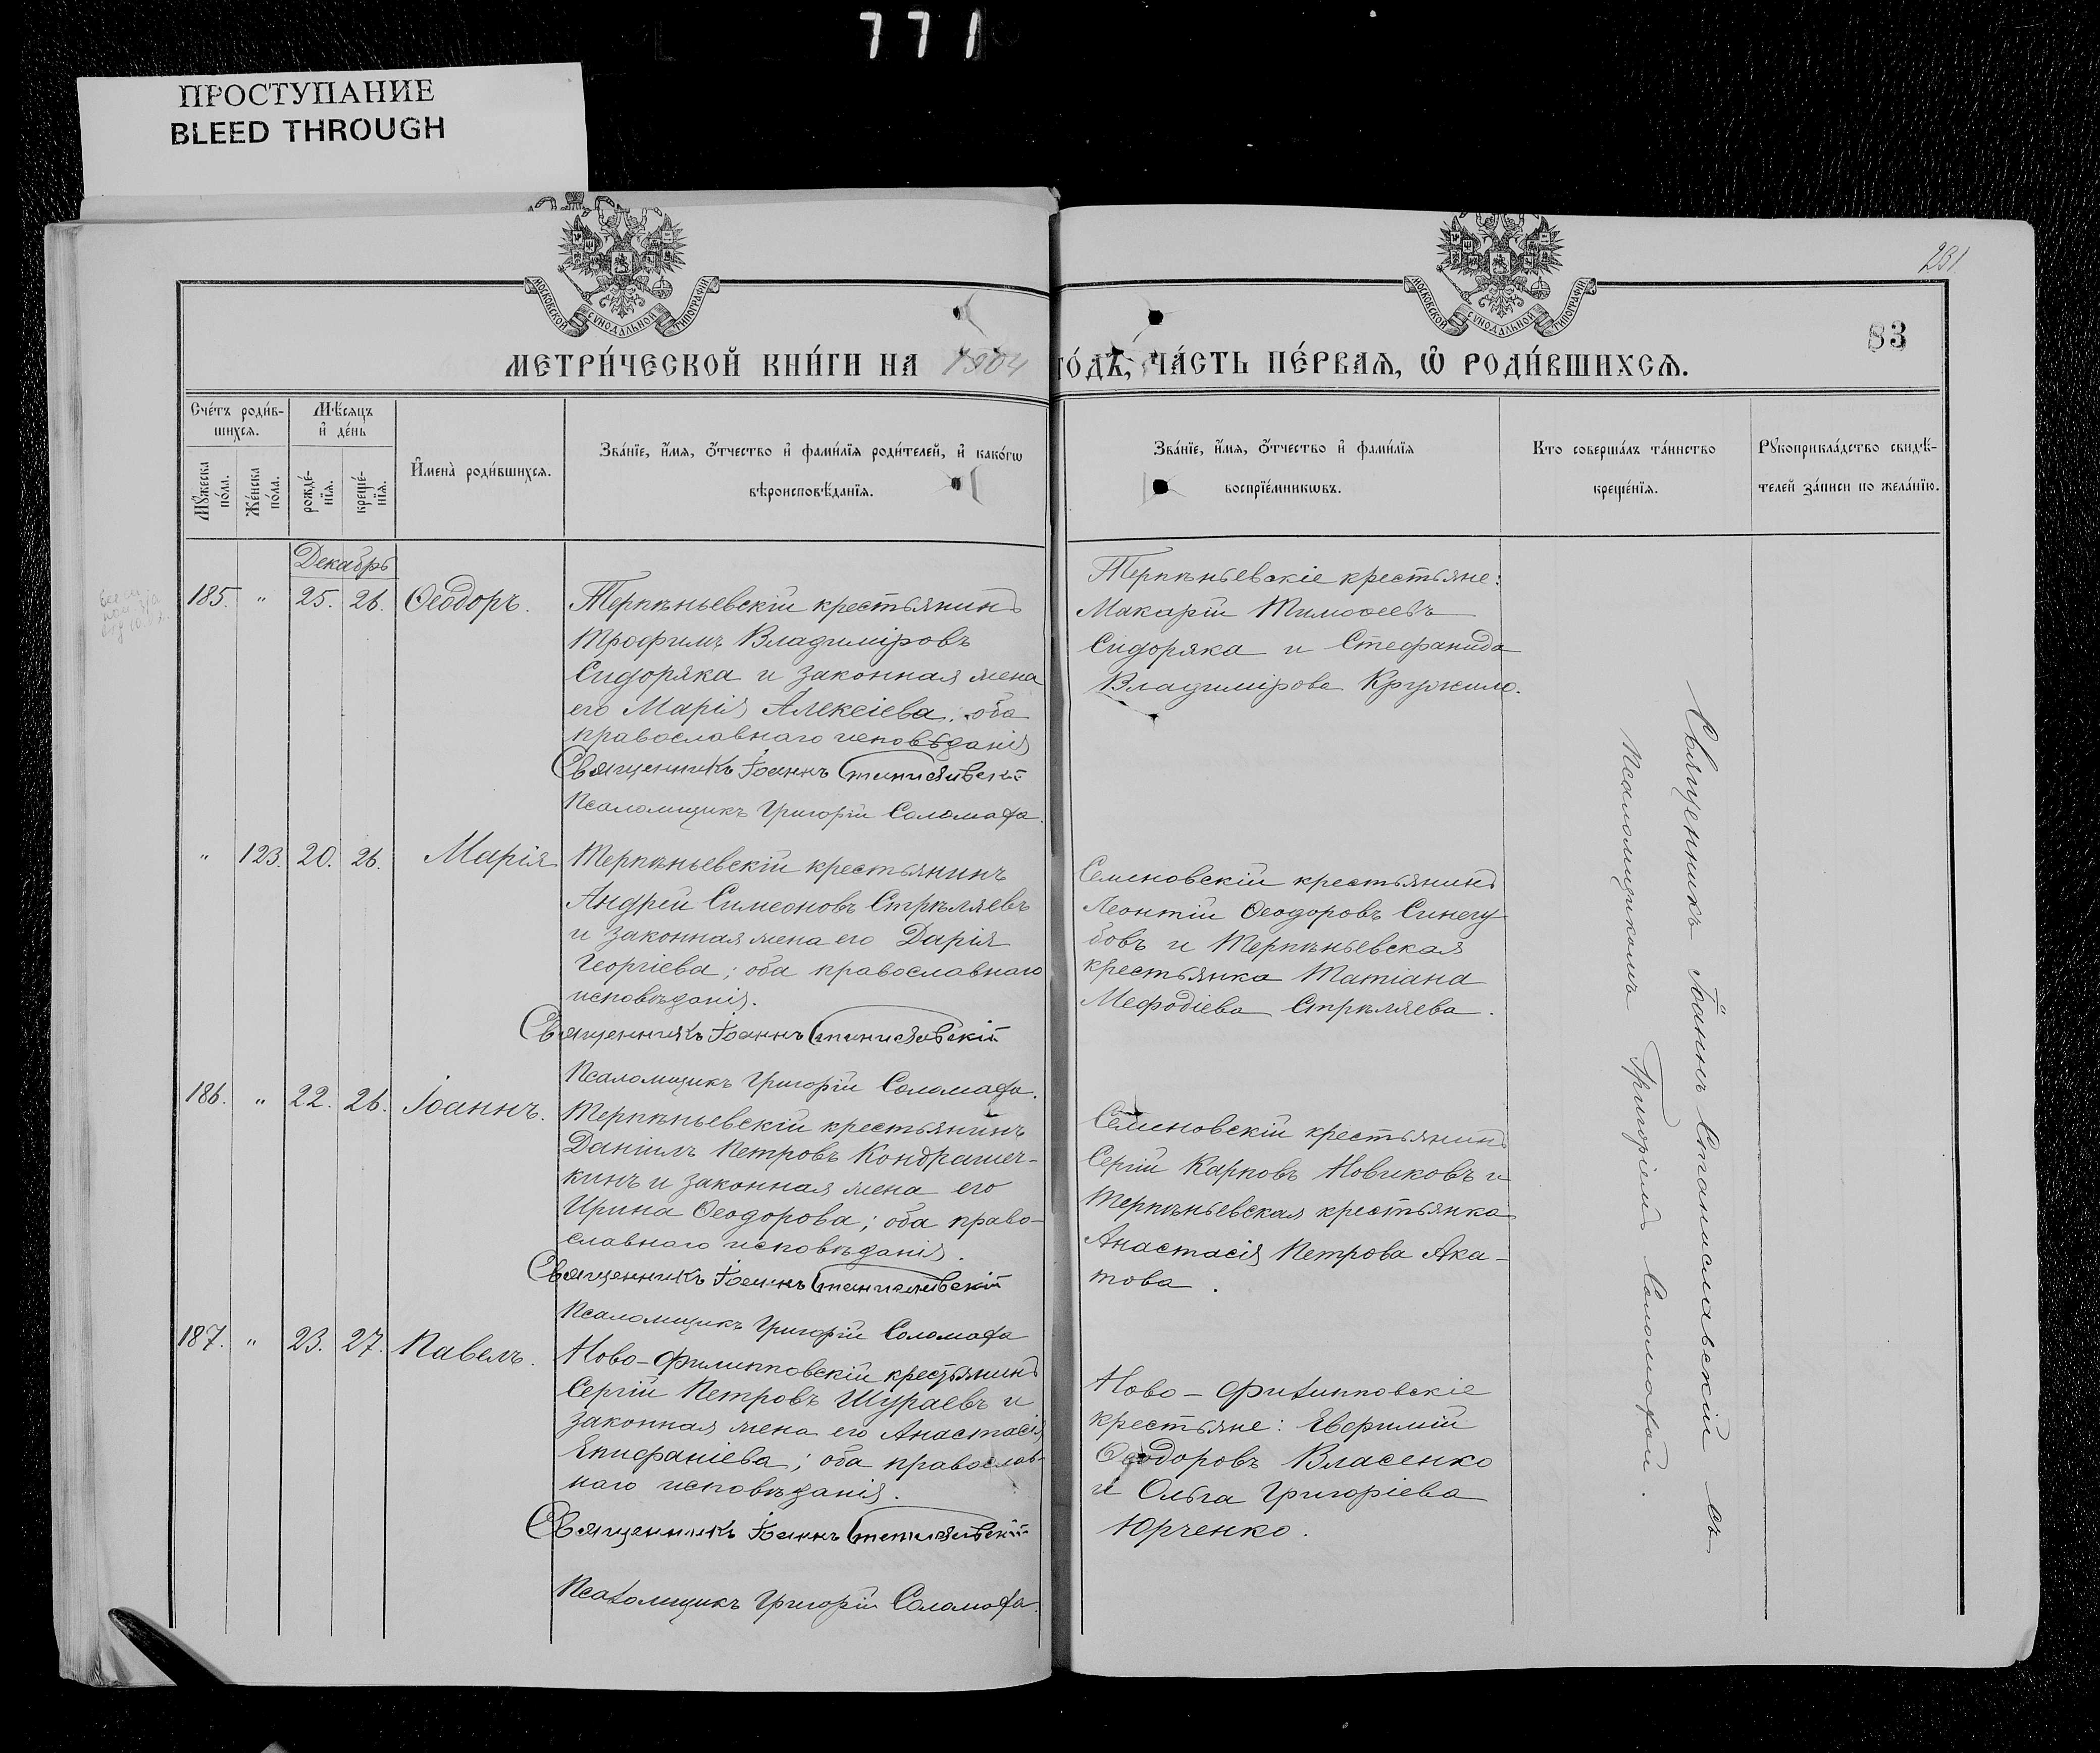 771
ПРОСТУПАНИЕ
BLEED THROUGH
231
83
МОСКОВСКОЙ СѴНОДАЛЬНОЙ ТИПОГРАФІИ
МОСКОВСКОЙ СѴНОДАЛЬНОЙ ТИПОГРАФІИ
МЕТРИ́ЧЕСКОЙ КНИ́ГИ НА 1904 ГО́ДЪ, ЧА́СТЬ ПЕ́РВАѦ, Ѡ҆ РОДИ́ВШИХСѦ.
Сче́тъ роди́в-
шихсѧ.
Мѣ́сѧцъ
и҆ де́нь
Мꙋ́жеска
по́ла.
Же́нска
по́ла.
рожде́-
нїѧ.
креще́-
нїѧ.
И҆мена̀ роди́вшихсѧ.
Зва́нїе, и҆́мѧ, ѻ҆́тчество и҆ фами́лїѧ роди́телей, и҆ како́гѡ
вѣроисповѣ́данїѧ.
Зва́нїе, и҆́мѧ, ѻ҆́тчество и҆ фами́лїѧ
воспрїе́мникѡвъ.
Кто соверша́лъ та́инство
креще́нїѧ.
Рꙋкоприкла́дство свидѣ́-
телей за́писи по жела́нїю.
Декабрь
185. " 25. 26. Ѳеодоръ.
Терпѣньевскій крестьянинъ
Трофимъ Владиміровъ
Сидоряка и законная жена
его Марія Алексіева. оба
православнаго исповѣданія
Священникъ Іоаннъ Станиславскій
Псаломщикъ Григорій Соломаха.
Терпѣньевскіе крестьяне:
Макарій Тимоѳеевъ
Сидоряка и Стефанида
Владимірова Кружило.
" 123. 20. 26. Марія
Терпѣньевскій крестьянинъ
Андрей Симеоновъ Стрѣляевъ
и законная жена его Дарія
Георгіева; оба православнаго
исповѣданія.
Священникъ Іоаннъ Станиславскій
Псаломщикъ Григорій Соломаха.
Семеновскій крестьянинъ
Леонтій Ѳеодоровъ Синегу
бовъ и Терпѣньевская
крестьянка Татіана
Мефодіева Стрѣляева.
186. " 22. 26. Іоаннъ.
Терпѣньевскій крестьянинъ
Даніилъ Петровъ Кондрашеч-
кинъ и законная жена его
Ирина Ѳеодорова; оба право-
славнаго исповѣданія.
Священникъ Іоаннъ Станиславскій
Псаломщикъ Григорій Соломаха
Семеновскій крестьянинъ
Сергій Карповъ Новиковъ и
Терпѣньевская крестьянка
Анастасія Петрова Ака-
това.
187. " 23. 27. Павелъ.
Ново-Филипповскій крестьянинъ
Сергій Петровъ Шураевъ и
законная жена его Анастасія
Епифаніева; оба православ-
наго исповѣданія.
Священникъ Іоаннъ Станиславскій
Псаломщикъ Григорій Соломаха.
Ново-Филипповскіе
крестьяне: Евфимій
Ѳеодоровъ Власенко
и Ольга Григоріева
Юрченко.
Священникъ Іоаннъ Станиславскій съ
псаломщикомъ Григоріемъ Соломахой.